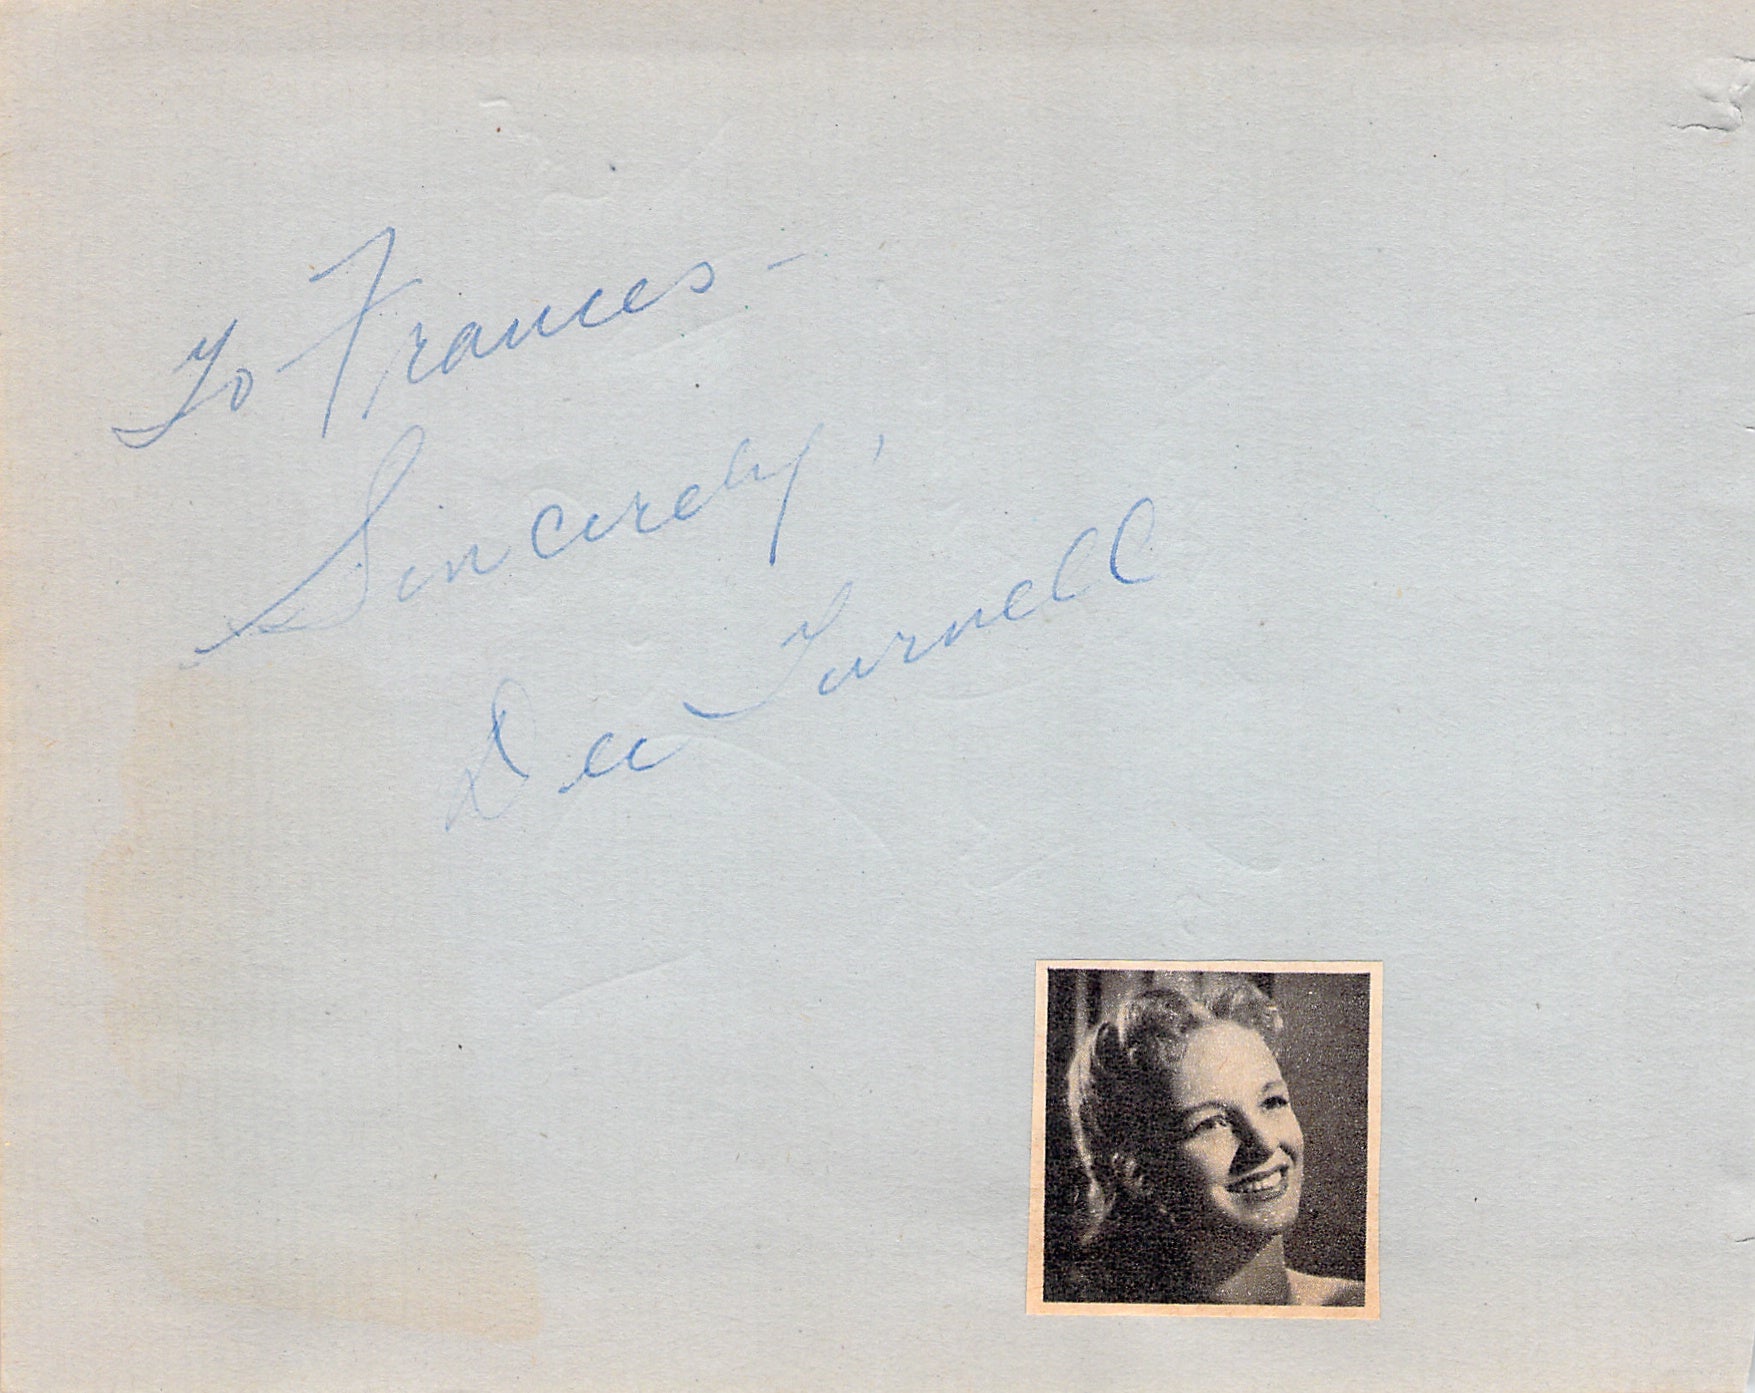 To Frances -
Sincerely,
Dee Turnell